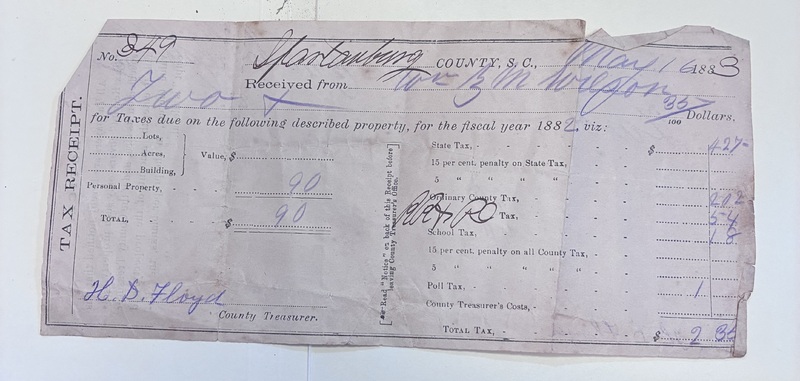 No. 849 Spartanburg COUNTY, S. C., May 16 1883
Received from Wm B M Wilson
Two & 35/100 Dollars.
for Taxes due on the following described property, for the fiscal year 1882. viz:
TAX RECEIPT.
Lots,
Acres,
Building,
Value, $
Personal Property, 90
TOTAL, $ 90
H. D. Floyd
County Treasurer.
Read "Notice" on back of this Receipt before leaving County Treasurer's Office.
State Tax, $ 427
15 per cent. penalty on State Tax,
5 " " " "
Ordinary County Tax, 202
Tax, 54
School Tax, 18
15 per cent. penalty on all County Tax,
5 " " " " "
Poll Tax, 1
County Treasurer's Costs,
TOTAL TAX, $ 2 35